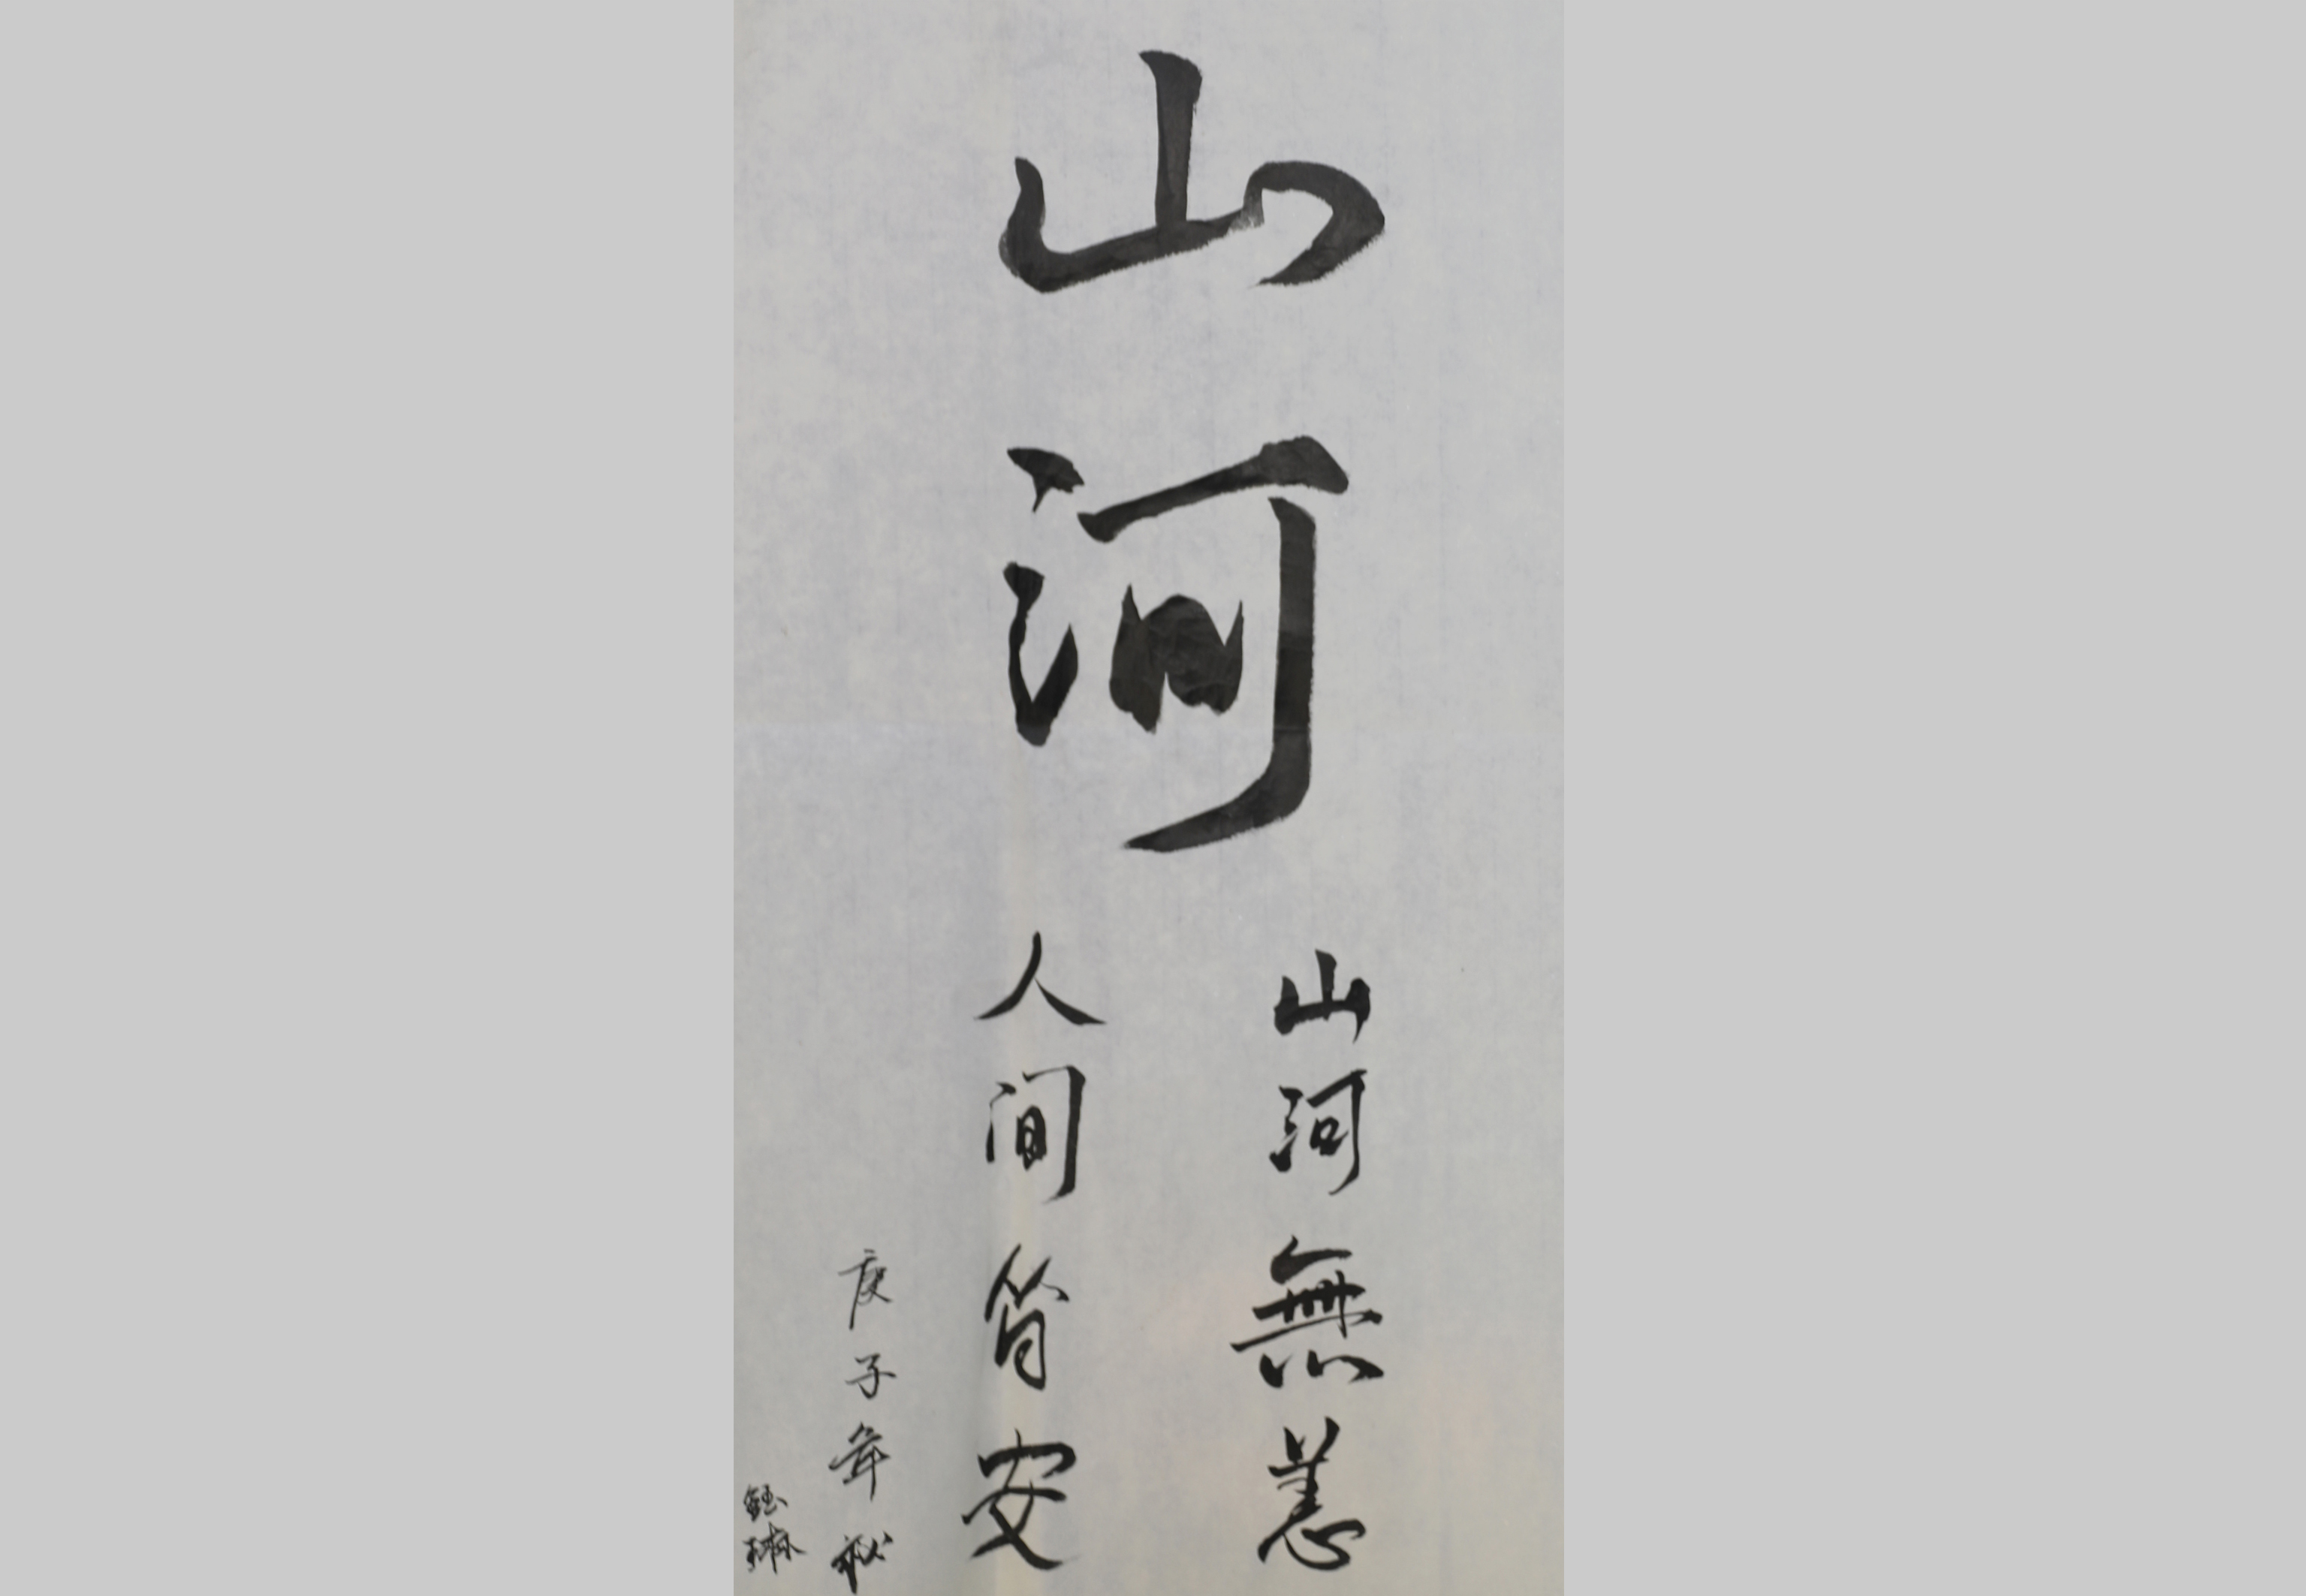 山河
山河無恙
人间皆安
庚子年秋
鈺琳